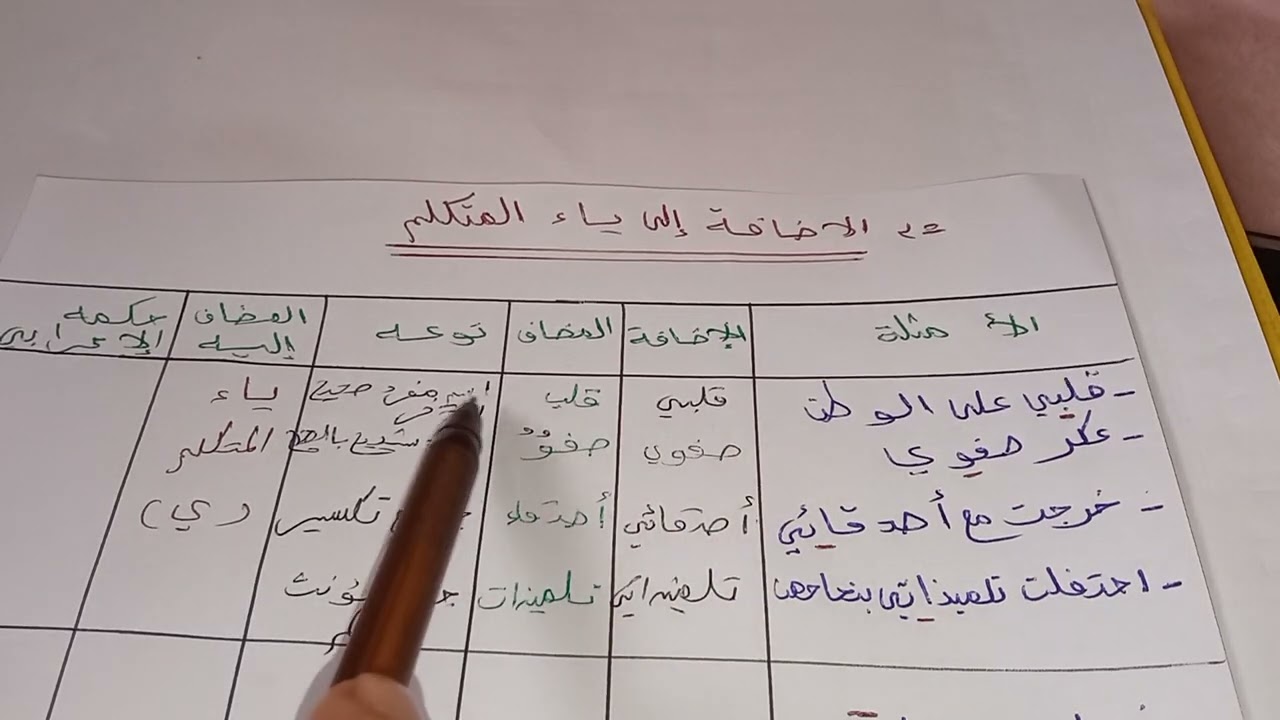 2= الإضافة إلى ياء المتكلم
الأمثلة الإضافة المضاف نوعه المضاف إليه حكمه الإعرابي
- قلبي على الوطن قلبي قلب اسم مفرد صحيح ياء
- عكر صفوي صفوي صفو شبيه المتكلم
- خرجت مع أصدقائي أصدقائي أصدقاء تكسير (ي)
- احتفلت تلميذاتي بنجاحهن تلميذاتي تلميذات مؤنث